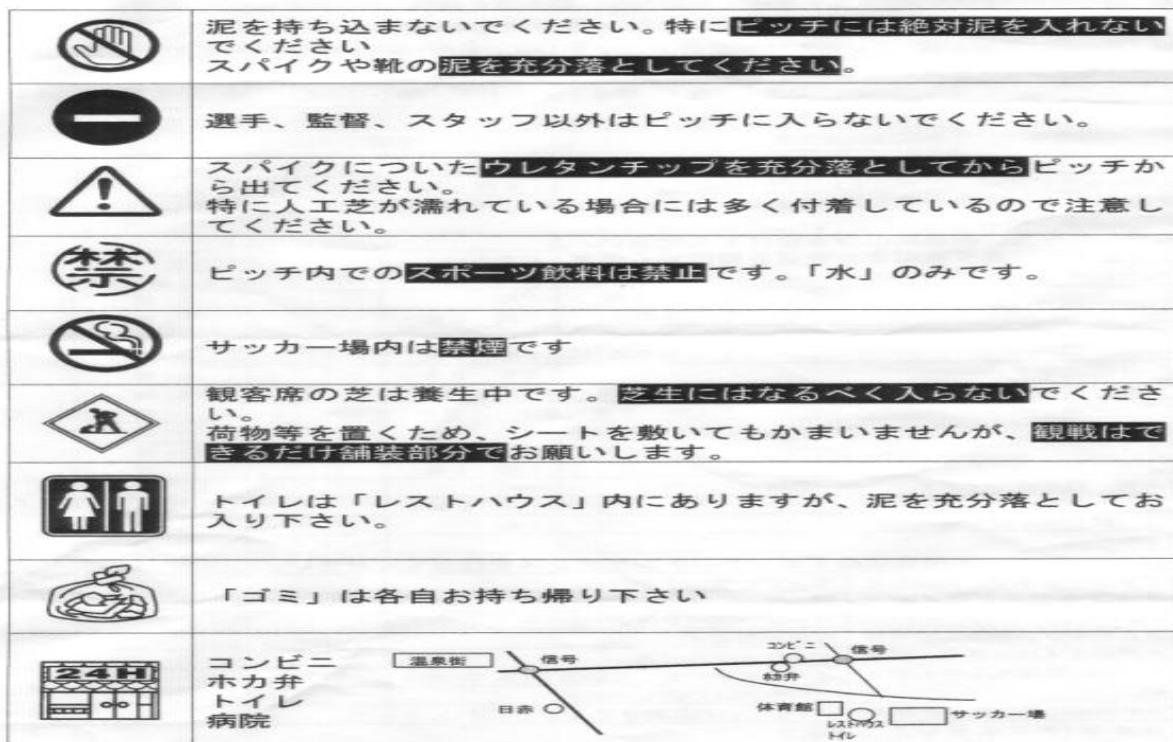 泥を持ち込まないでください。特にピッチには絶対泥を入れない
でください
スパイクや靴の泥を充分落としてください。
選手、監督、スタッフ以外はピッチに入らないでください。
スパイクについたウレタンチップを充分落としてからピッチか
ら出てください。
特に人工芝が濡れている場合には多く付着しているので注意し
てください。
禁
ピッチ内でのスポーツ飲料は禁止です。「水」のみです。
サッカー場内は禁煙です
観客席の芝は養生中です。芝生にはなるべく入らないでくださ
い。
荷物等を置くため、シートを敷いてもかまいませんが、観戦はで
きるだけ舗装部分でお願いします。
トイレは「レストハウス」内にありますが、泥を充分落としてお
入り下さい。
「ゴミ」は各自お持ち帰り下さい
24H
コンビニ
ホカ弁
トイレ
病院
温泉街
信号
日赤
コンビニ
信号
ホカ弁
体育館
レストハウス
トイレ
サッカー場